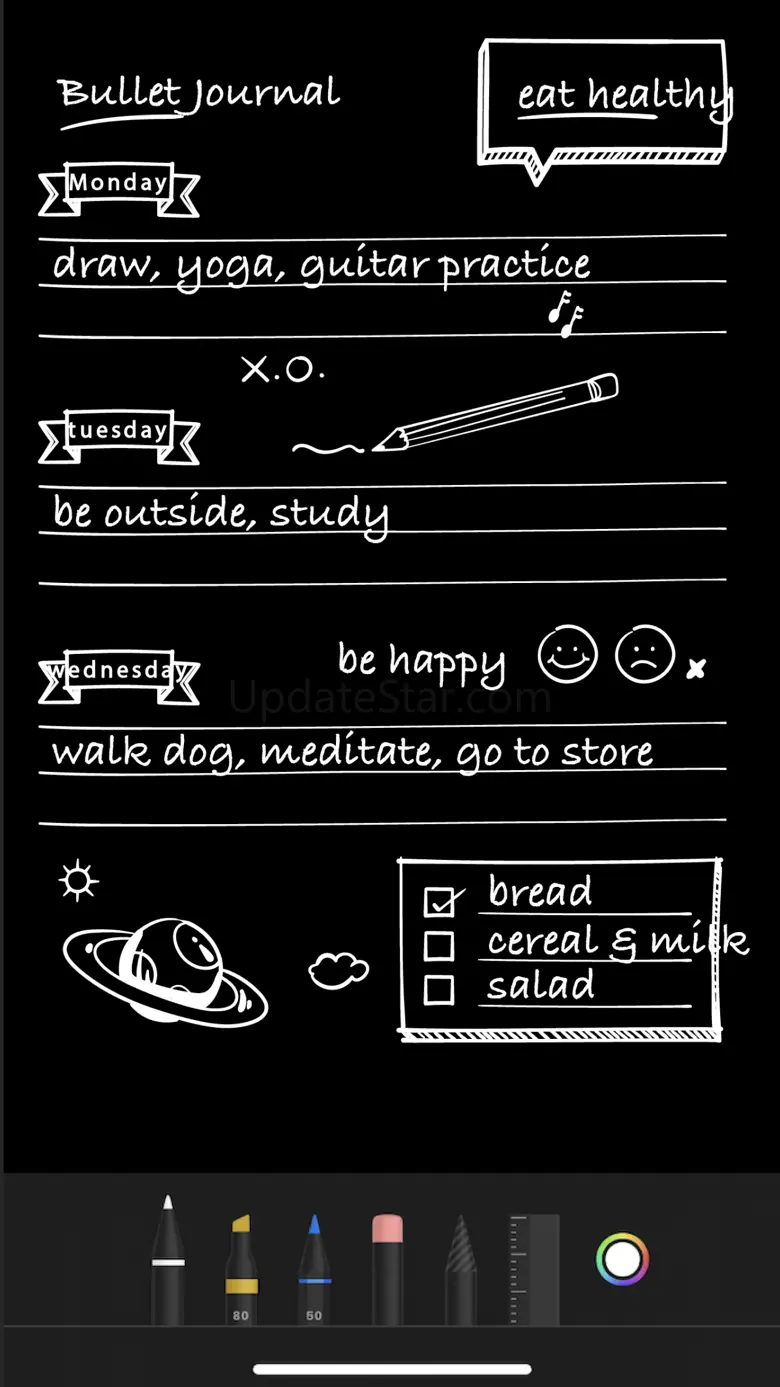 Bullet Journal
eat healthy
Monday
draw, yoga, guitar practice
X.O.
tuesday
be outside, study
wednesday
be happy
UpdateStar.com
walk dog, meditate, go to store
bread
cereal & milk
salad
80
50